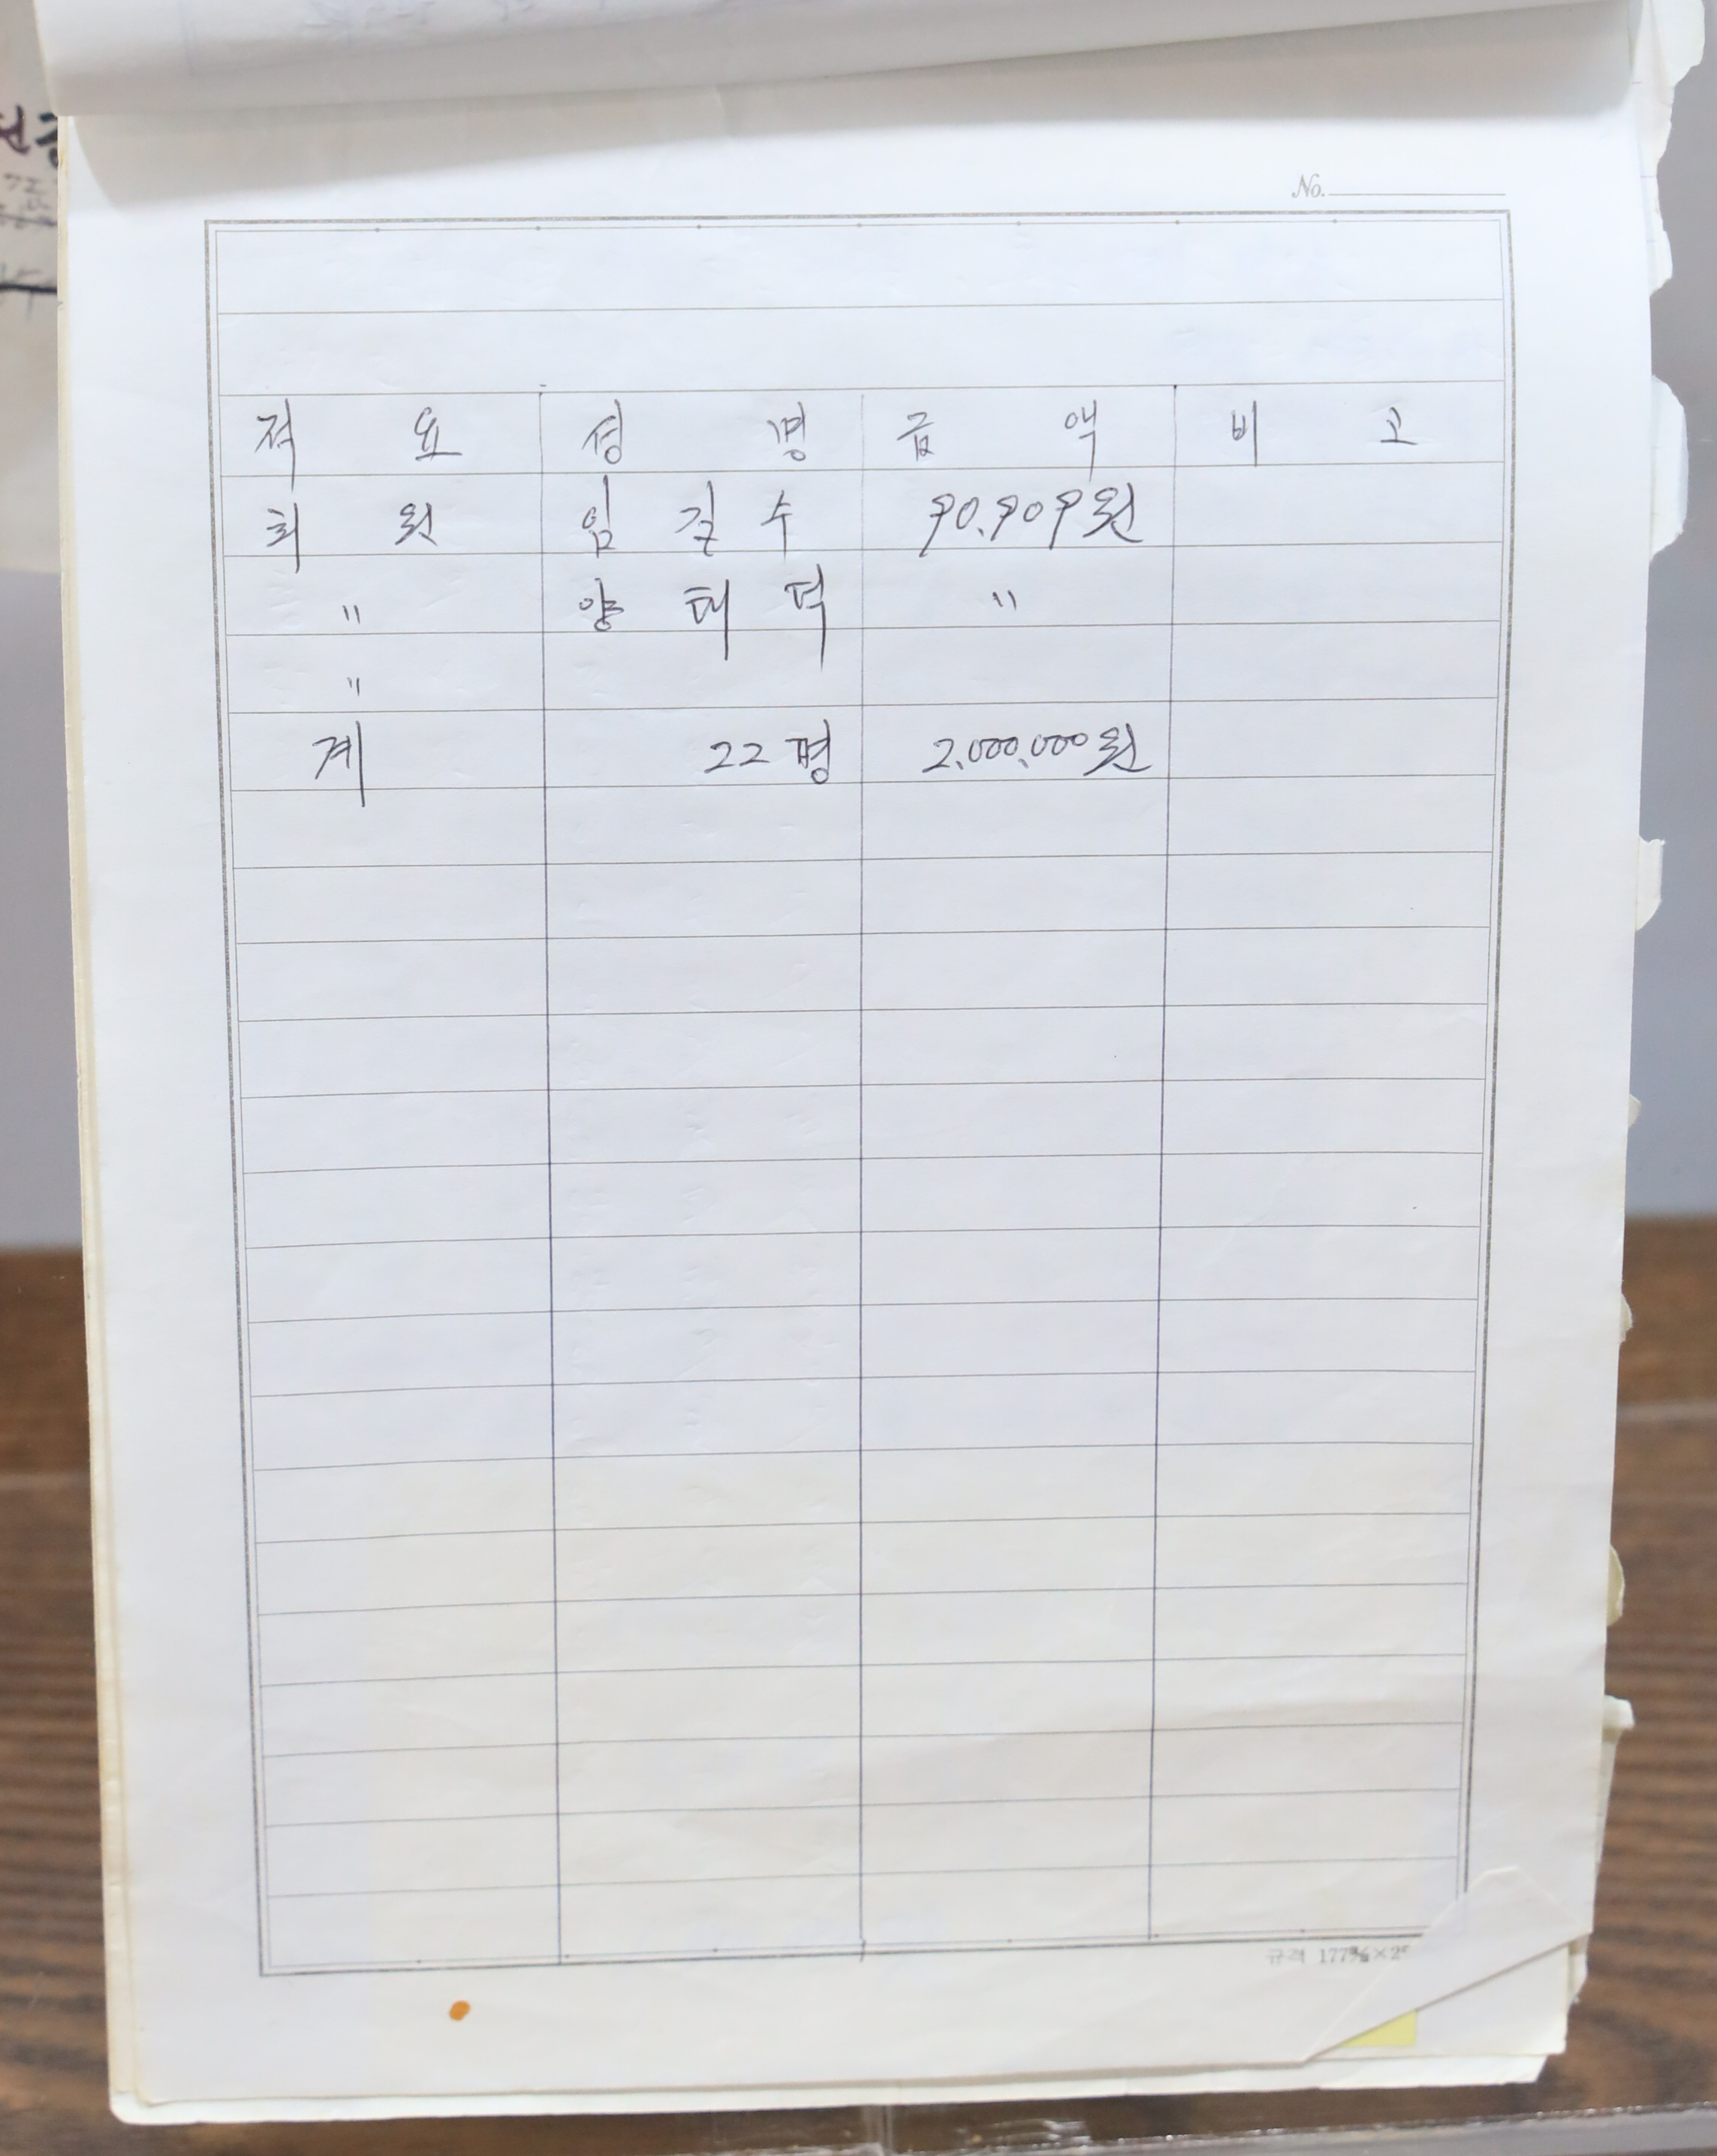 No.
적 요 성 명 금 액 비 고
회 원 임 길 수 90.909원
" 양 태 덕 "
"
계 22명 2.000.000원
규격